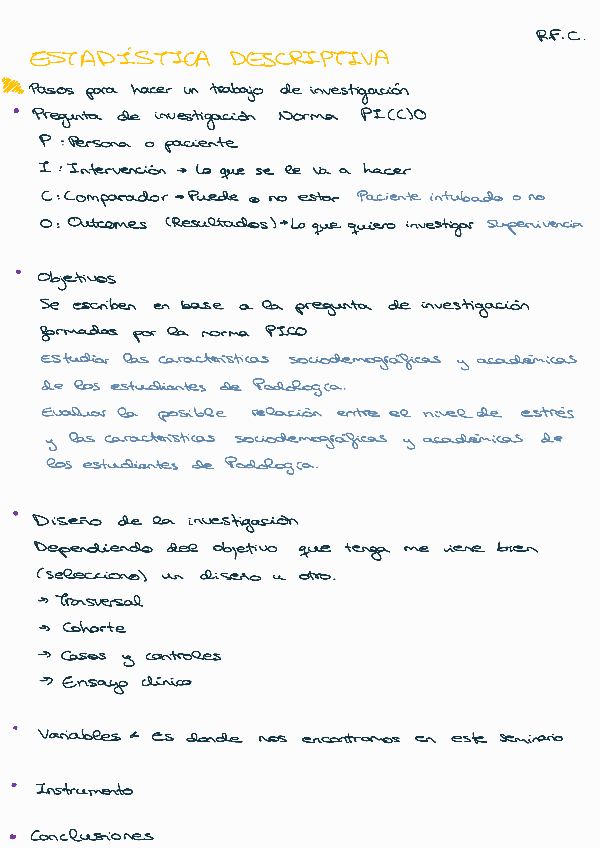 R.F.C.
ESTADÍSTICA DESCRIPTIVA
Pasos para hacer un trabajo de investigación
• Pregunta de investigación Norma PI(C)O
P: Persona o paciente
I: Intervención → Lo que se le va a hacer
C: Comparador → Puede o no estar Paciente intubado o no
O: Outcomes (Resultados) → Lo que quiero investigar Supervivencia
• Objetivos
Se escriben en base a la pregunta de investigación
formadas por la norma PICO
Estudiar las características sociodemográficas y académicas
de los estudiantes de Podología.
Evaluar la posible relación entre el nivel de estrés
y las características sociodemográficas y académicas de
los estudiantes de Podología.
• Diseño de la investigación
Dependiendo del objetivo que tenga me viene bien
(selecciono) un diseño u otro.
→ Transversal
→ Cohorte
→ Casos y controles
→ Ensayo clínico
• Variables ← es donde nos encontramos en este seminario
• Instrumento
• Conclusiones